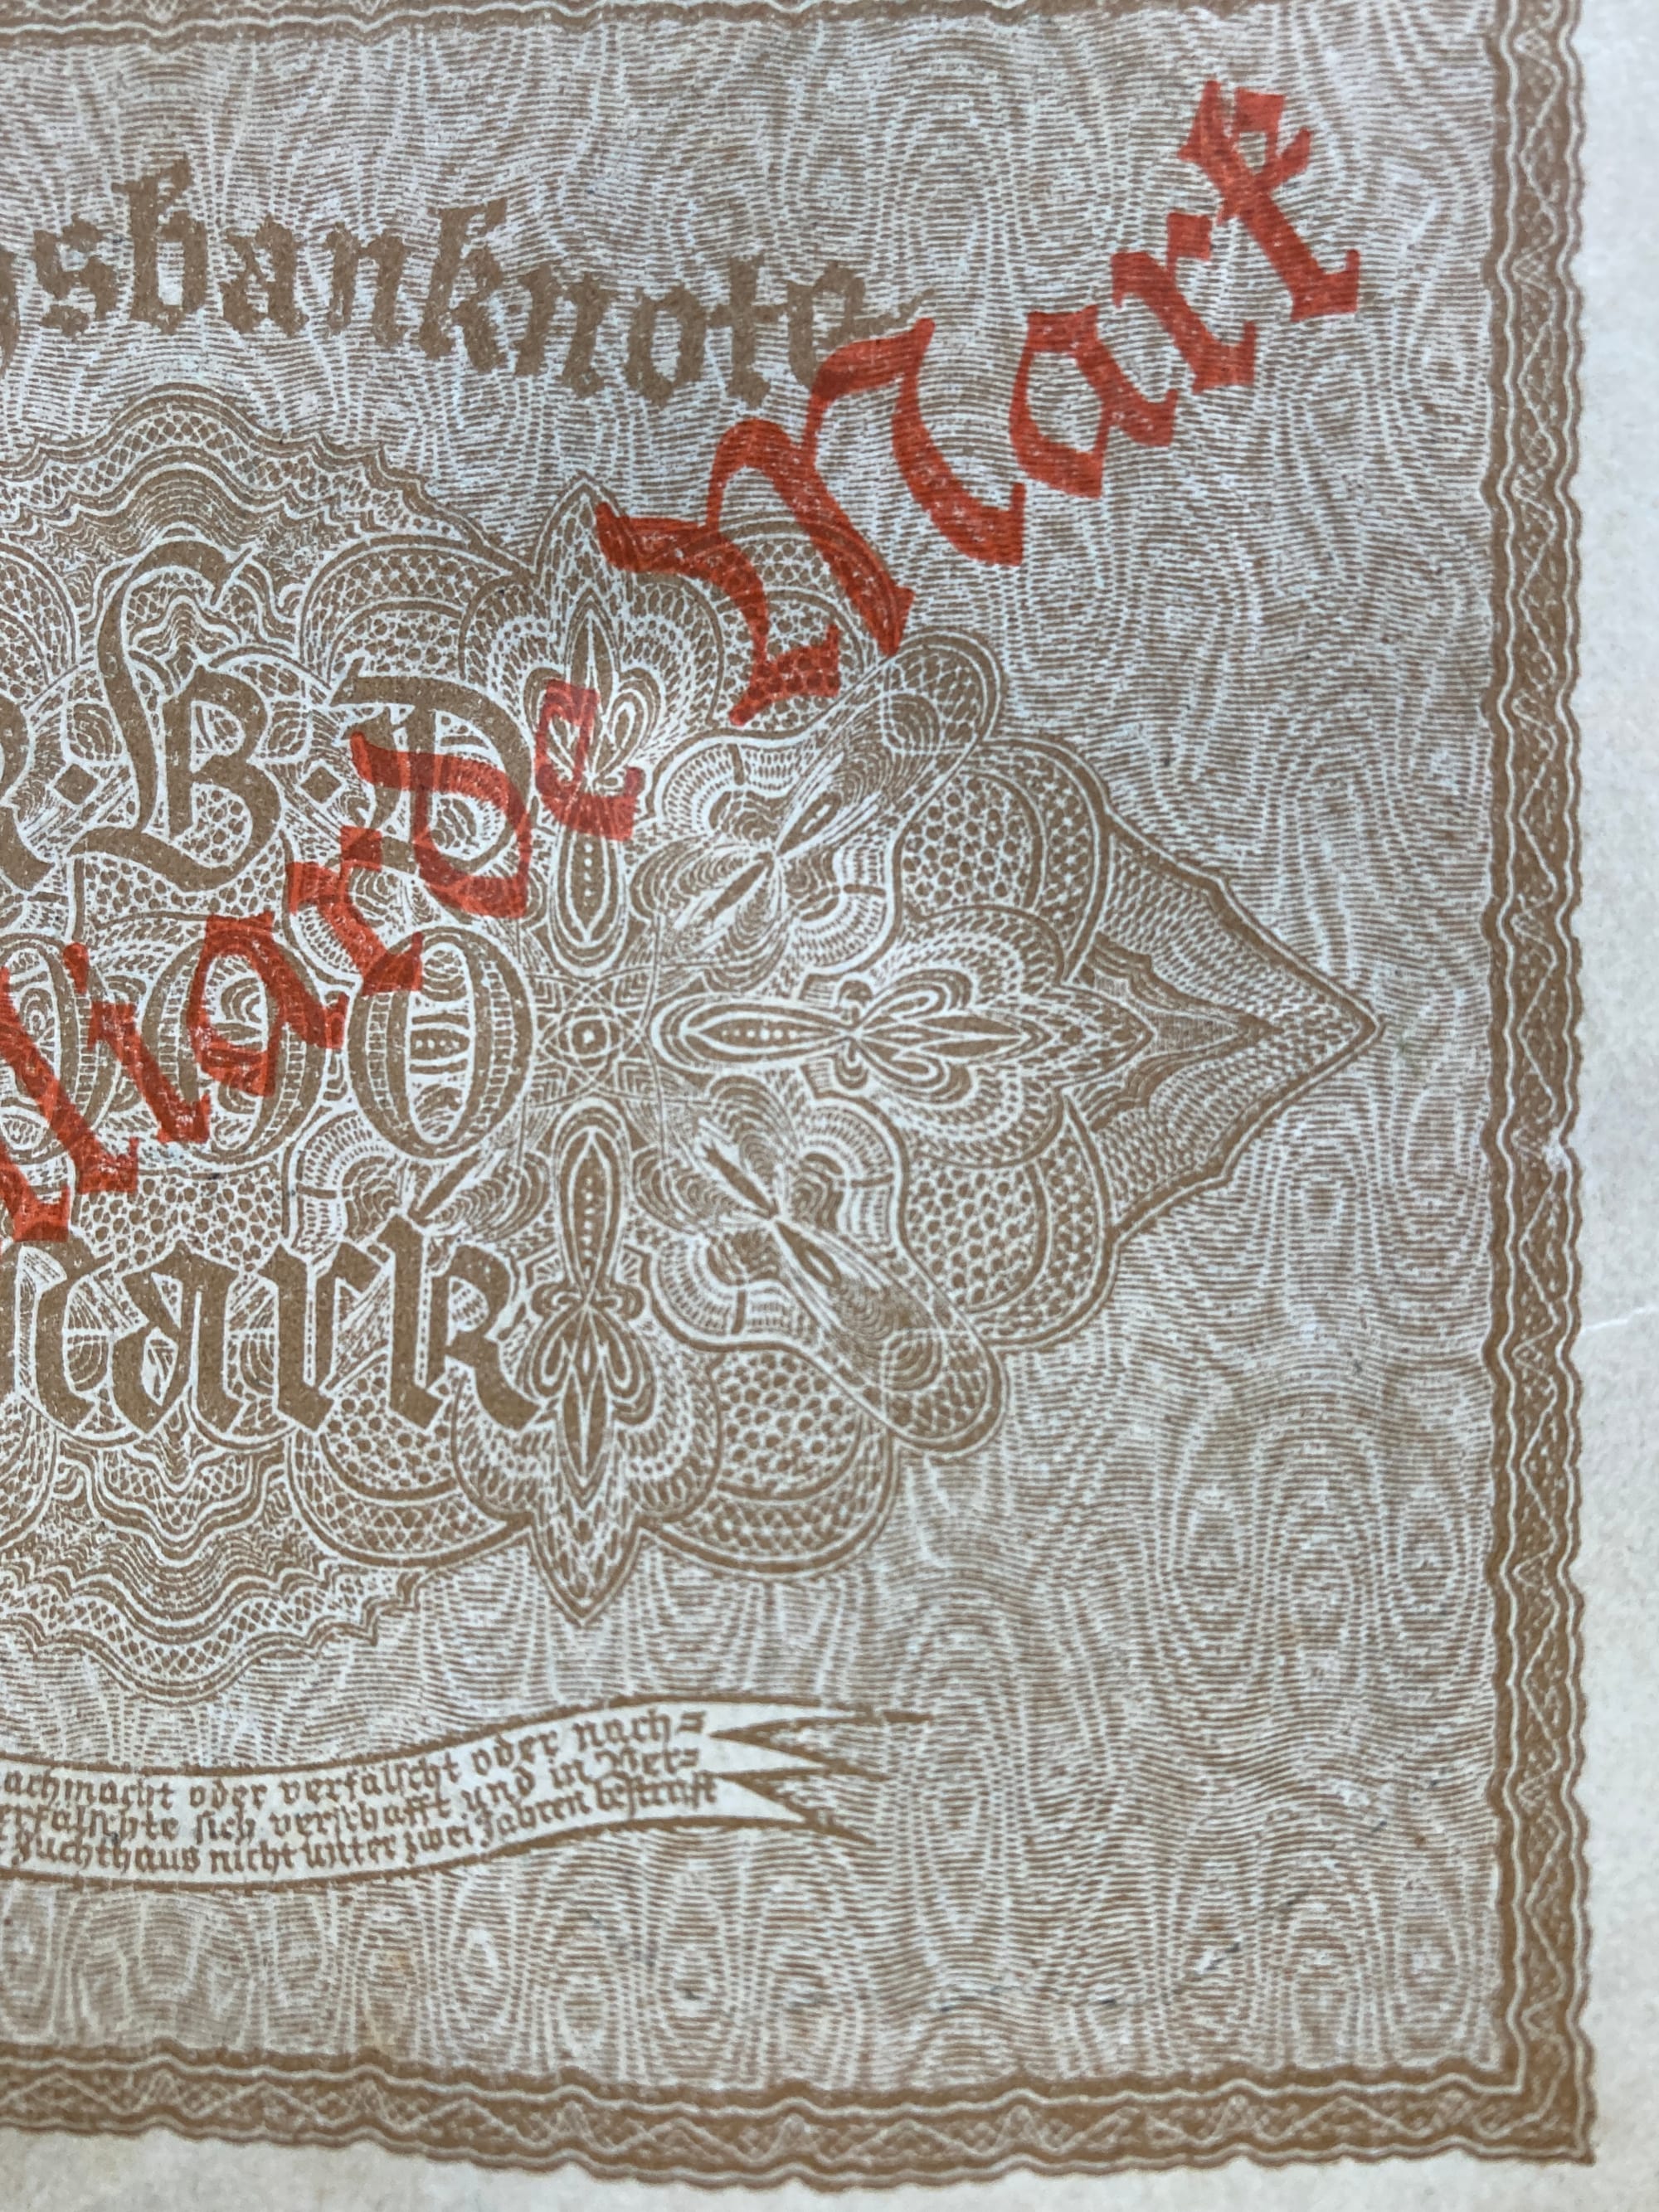 sbanknote
B·D
lliarde Mark
000
ark
achmacht oder verfälscht oder nach=
erfälschte sich verschafft und in Ver=
Zuchthaus nicht unter zwei Jahren bestraft